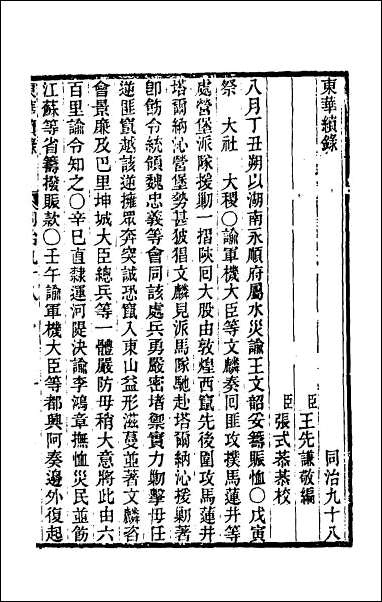 東華續錄　同治九十八
臣王先謙敬編
臣張式恭恭校
八月丁丑朔以湖南永順府屬水災諭王文韶妥籌賑恤〇戊寅
祭　大社　大稷〇諭軍機大臣等文麟奏回匪攻撲馬蓮井等
處營堡派隊援勦一摺陝回大股由敦煌西竄先後圍攻馬蓮井
塔爾納沁營堡勢甚狓猖文麟見派馬隊馳赴塔爾納沁援勦著
卽飭令統領魏忠義等會同該處兵勇嚴密堵禦實力勦擊毋任
逆匪竄越該逆擁眾奔突誠恐竄入東山益形滋蔓並著文麟咨
會景廉及巴里坤城大臣總兵等一體嚴防毋稍大意將此由六
百里諭令知之〇辛巳直隸運河隄決諭李鴻章撫恤災民並飭
江蘇等省籌撥賑款〇壬午諭軍機大臣等都興阿奏邊外復起